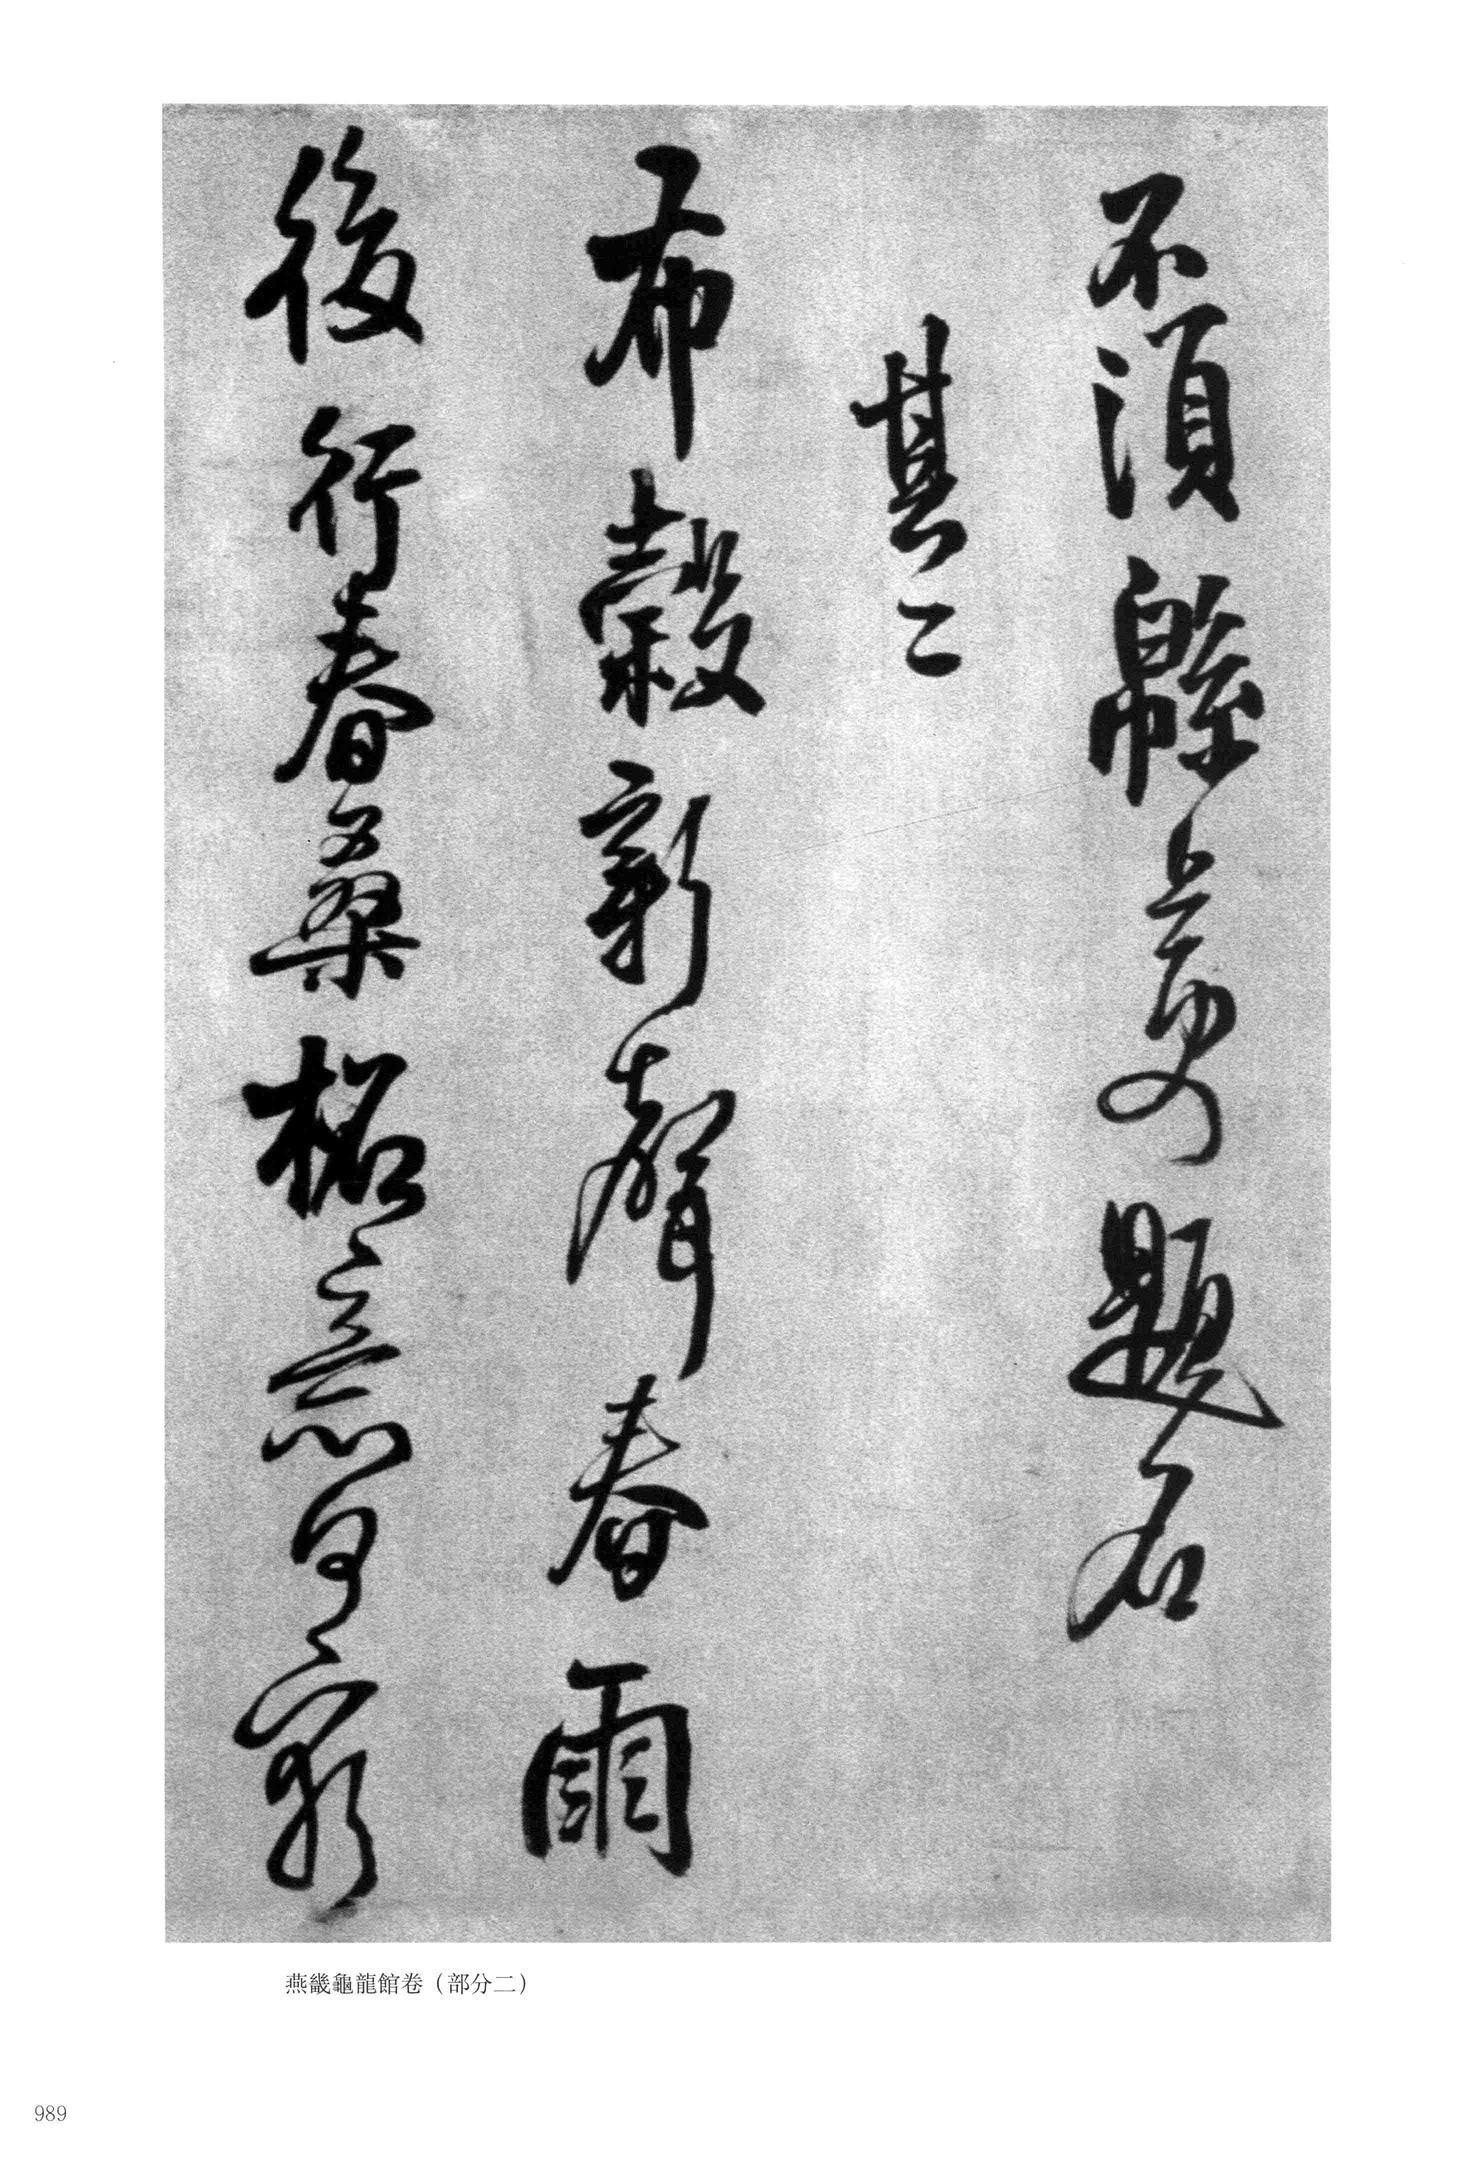 不須緜上要題名
其二
布穀新聲春雨
後行春桑柘意何窮
燕畿龜龍館卷（部分二）
989